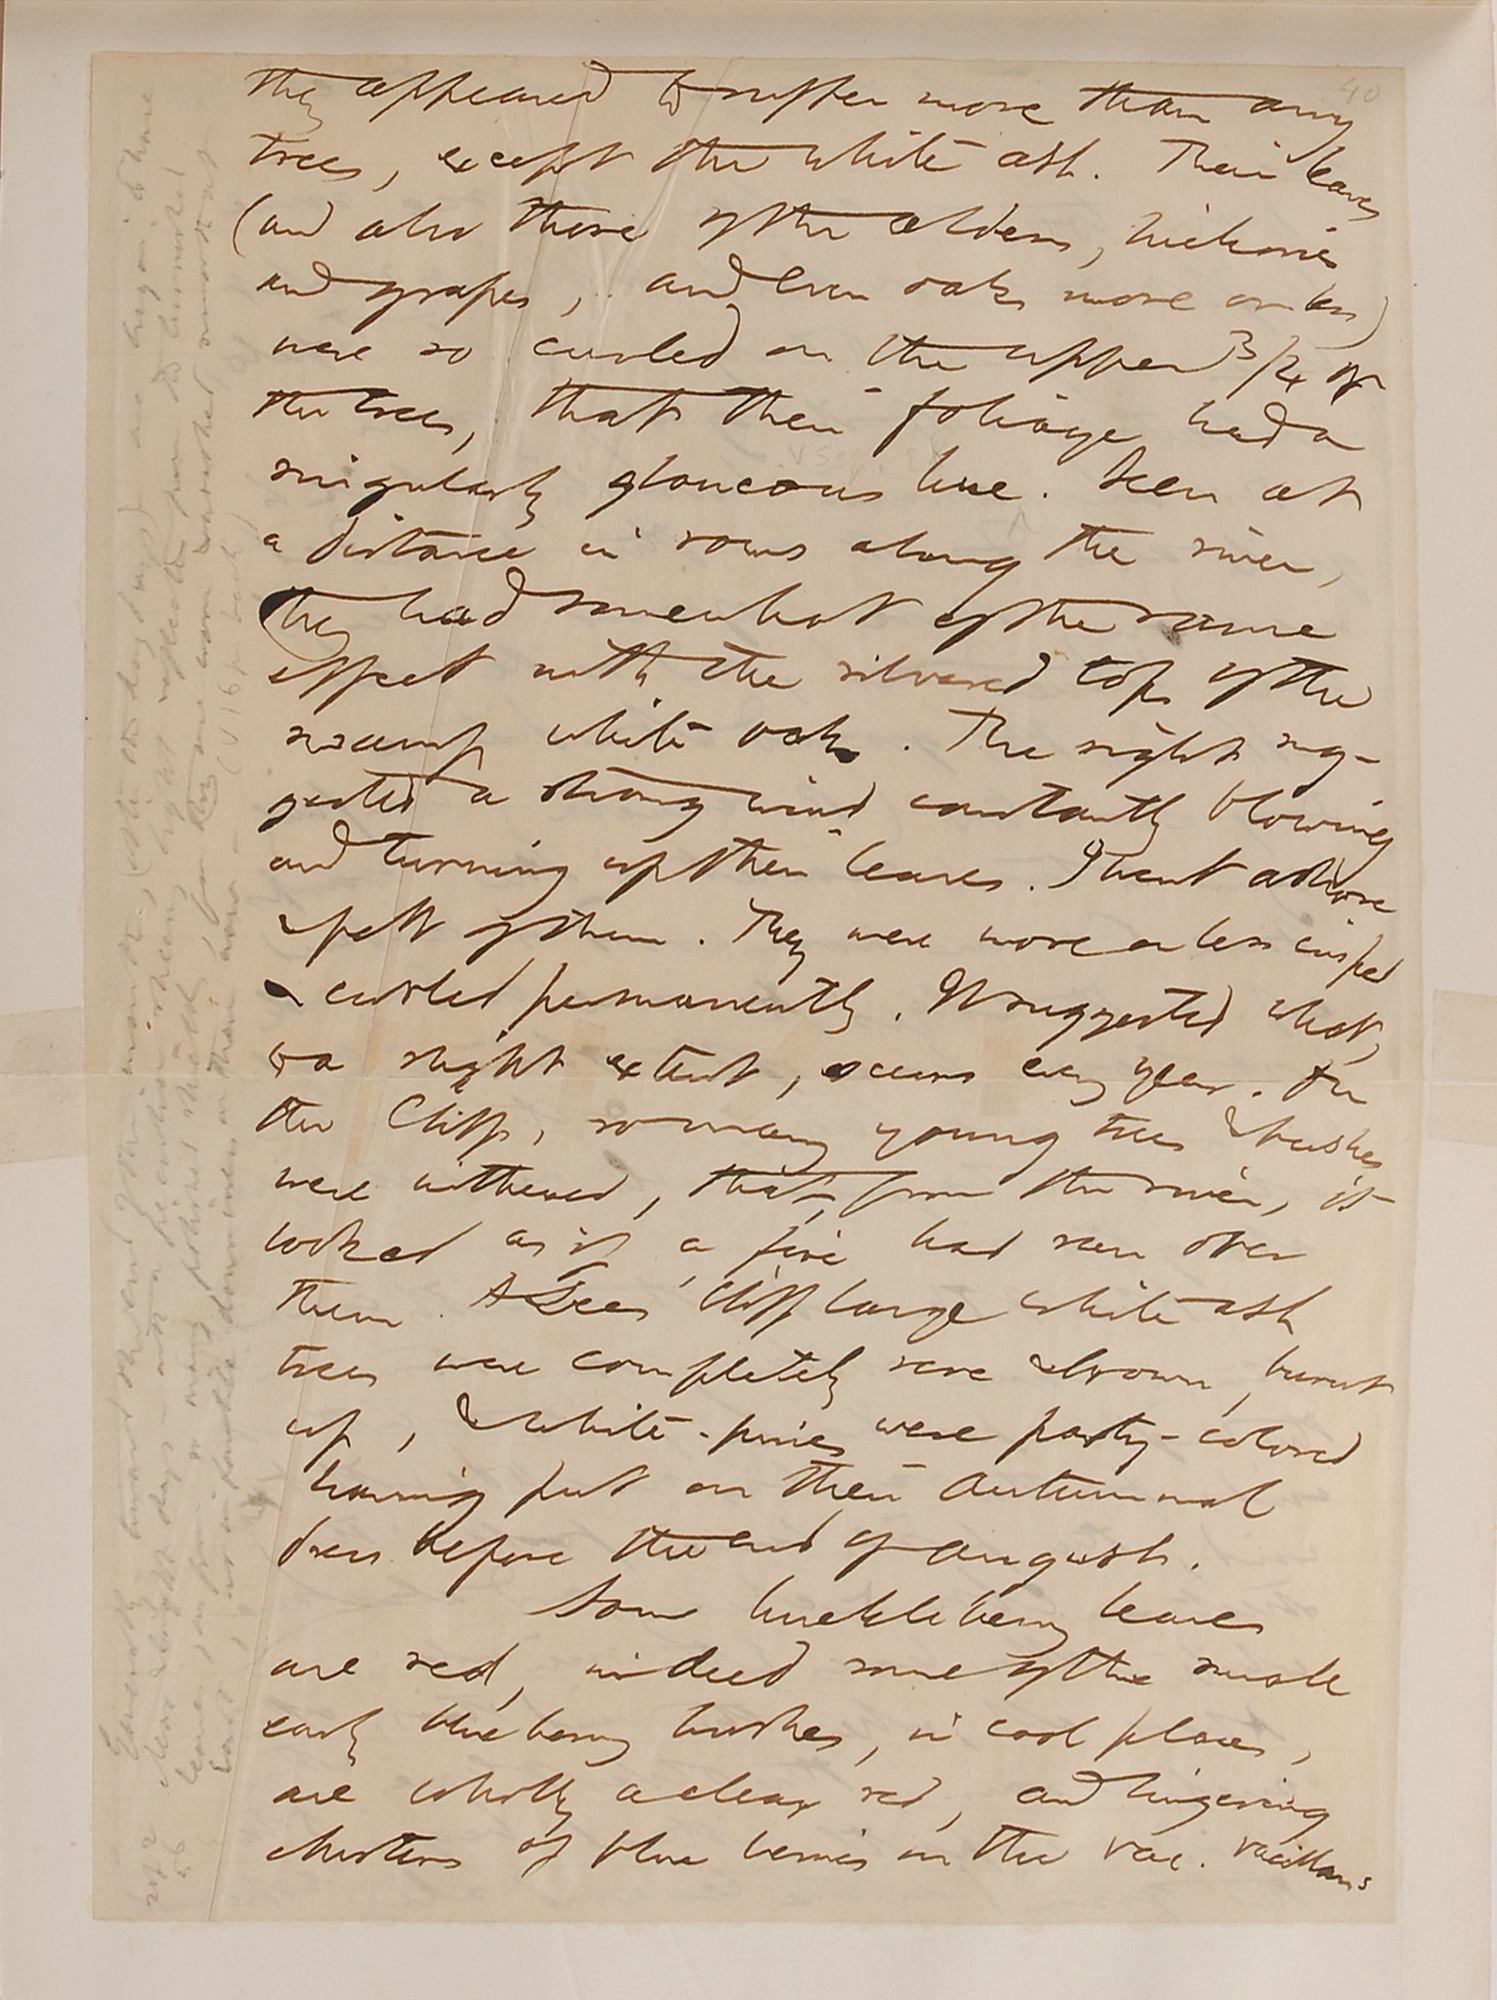 40
they appeared to suffer more than any
trees, except the white ash. Their leaves
(and also those of the alders, hickories
and grapes, and even oaks more or less)
were so curled on the upper 3/4 of
the trees, that their foliage had a
singularly glaucous hue. Seen at
a distance in rows along the river,
they had somewhat of the same
effect with the silvered tops of the
swamp white oak. The sight sug-
gested a strong wind constantly blowing
and turning up their leaves. I went ashore
& felt of them. They were more or less crisped
& curled permanently. It suggested what,
to a slight extent, occurs every year. On
the Cliffs, so many young trees & bushes
were withered, that, from the river, it
looked as if a fire had run over
them. At Lees Cliff large white ash
trees were completely sere & brown, burnt
up, & white-pines were party-colored
having put on their autumnal
dress before the end of August.
Some huckleberry leaves
are red, indeed some of the small
early blueberry bushes, in cool places,
are wholly a clear red, and lingering
clusters of blue berries on the vac. vacillans